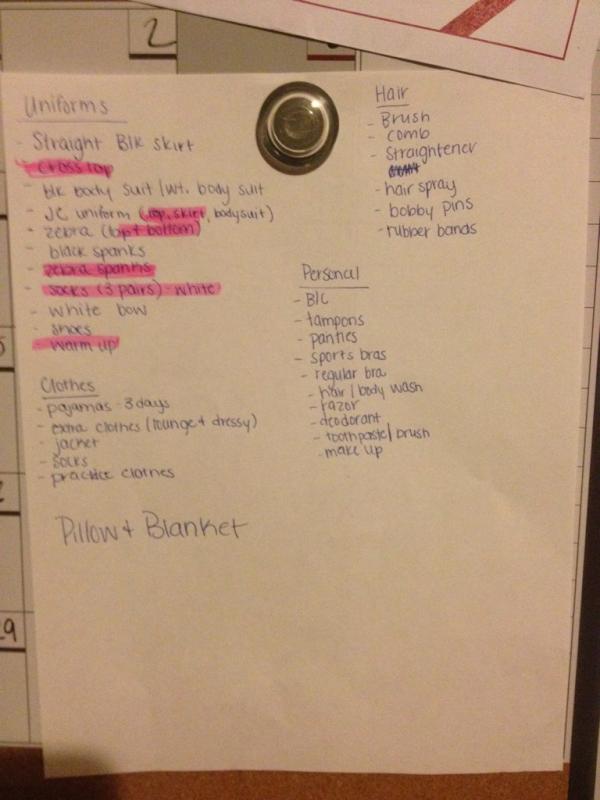 2
Uniforms
- Straight Blk skirt
- Cross top
- blk body suit / wt. body suit
- JC uniform (top, skirt, bodysuit)
- zebra (top + bottom)
- black spanks
- zebra spanks
- socks (3 pairs) - white
- white bow
- shoes
- warm up
Clothes
- pajamas - 3 days
- extra clothes (lounge + dressy)
- jacket
- socks
- practice clothes
Pillow + Blanket
Hair
- Brush
- comb
- Straightener
- hair spray
- bobby pins
- rubber bands
Personal
- B/C
- tampons
- panties
- sports bras
- regular bra
- hair / body wash
- razor
- deodorant
- toothpaste / brush
- make up
29